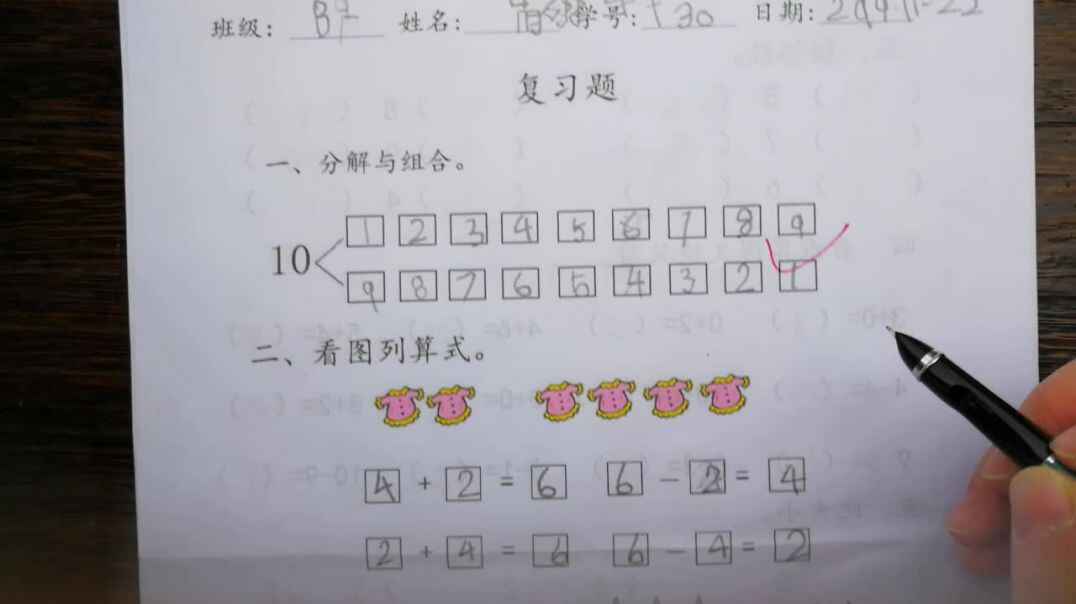 班级: 姓名: 学号: 130 日期:
复习题
一、分解与组合。
1 2 3 4 5 6 7 8 9
10
9 8 7 6 5 4 3 2 1
二、看图列算式。
4 + 2 = 6 6 - 2 = 4
2 + 4 = 6 6 - 4 = 2